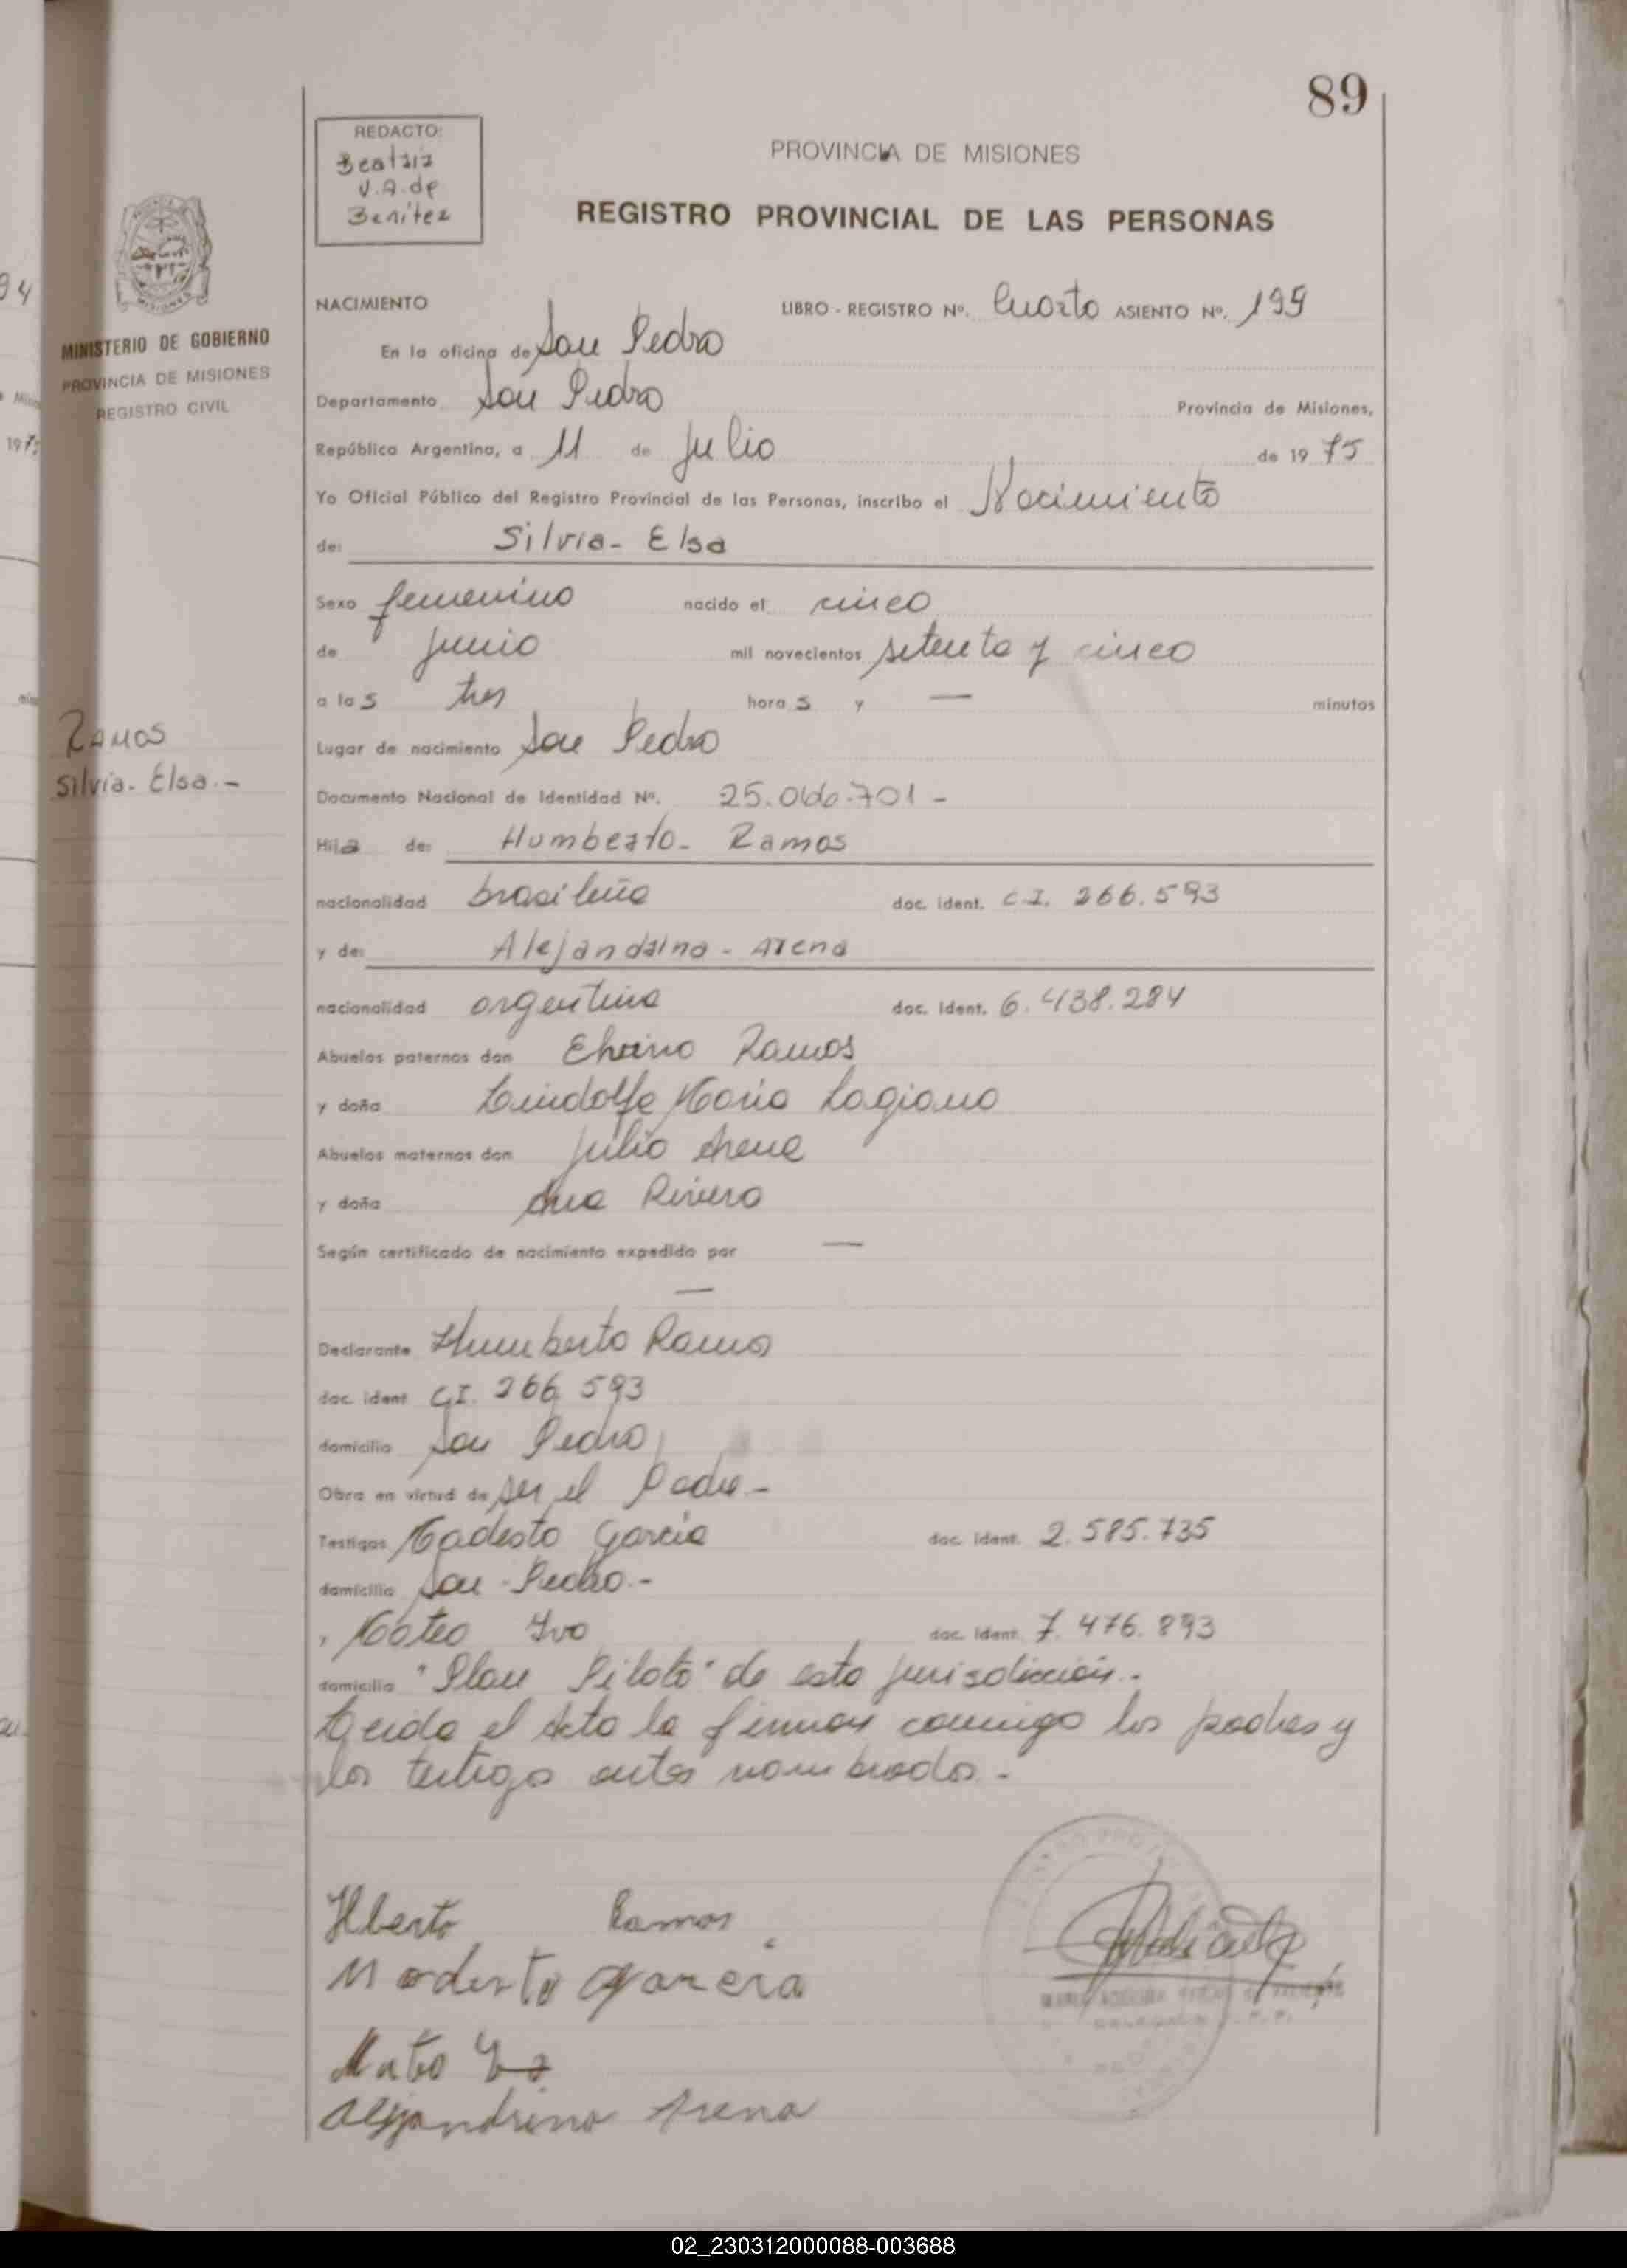 89
REDACTO:
Beatriz
V.A. de
Benítez
PROVINCIA DE MISIONES
REGISTRO PROVINCIAL DE LAS PERSONAS
94
MISIONES
MINISTERIO DE GOBIERNO
PROVINCIA DE MISIONES
REGISTRO CIVIL
NACIMIENTO
LIBRO - REGISTRO Nº. Cuarto ASIENTO Nº. 195
En la oficina de San Pedro
Departamento San Pedro Provincia de Misiones,
República Argentina, a 11 de Julio de 19 75
Yo Oficial Público del Registro Provincial de las Personas, inscribo el Nacimiento
de: Silvia - Elsa
Sexo femenino nacido el cinco
de junio mil novecientos setenta y cinco
a las tres horas y — minutos
Ramos
Silvia - Elsa.-
Lugar de nacimiento San Pedro
Documento Nacional de Identidad Nº. 25.060.701 -
Hija de: Humberto - Ramos
nacionalidad brasileña doc. ident. C.I. 266.593
y de: Alejandrina - Arena
nacionalidad argentina doc. ident. 6.438.284
Abuelos paternos don Ramos
y doña María
Abuelos maternos don Julio Arena
y doña Ana Rivero
Según certificado de nacimiento expedido por —
—
Declarante Humberto Ramos
doc. ident. C.I. 266 593
domicilio San Pedro
Obra en virtud de ser el Padre -
Testigos Modesto García doc. ident. 2.585.735
domicilio San - Pedro -
, Mateo Ivo doc. ident. 7.476.893
domicilio "Plan Piloto" de esta jurisdicción.-
Leida el Acta la firman conmigo los padres y
los testigos antes nombrados -
Hberto Ramos
Modesto Garcia
Mateo Ivo
Alejandrina Arena
02_230312000088-003688